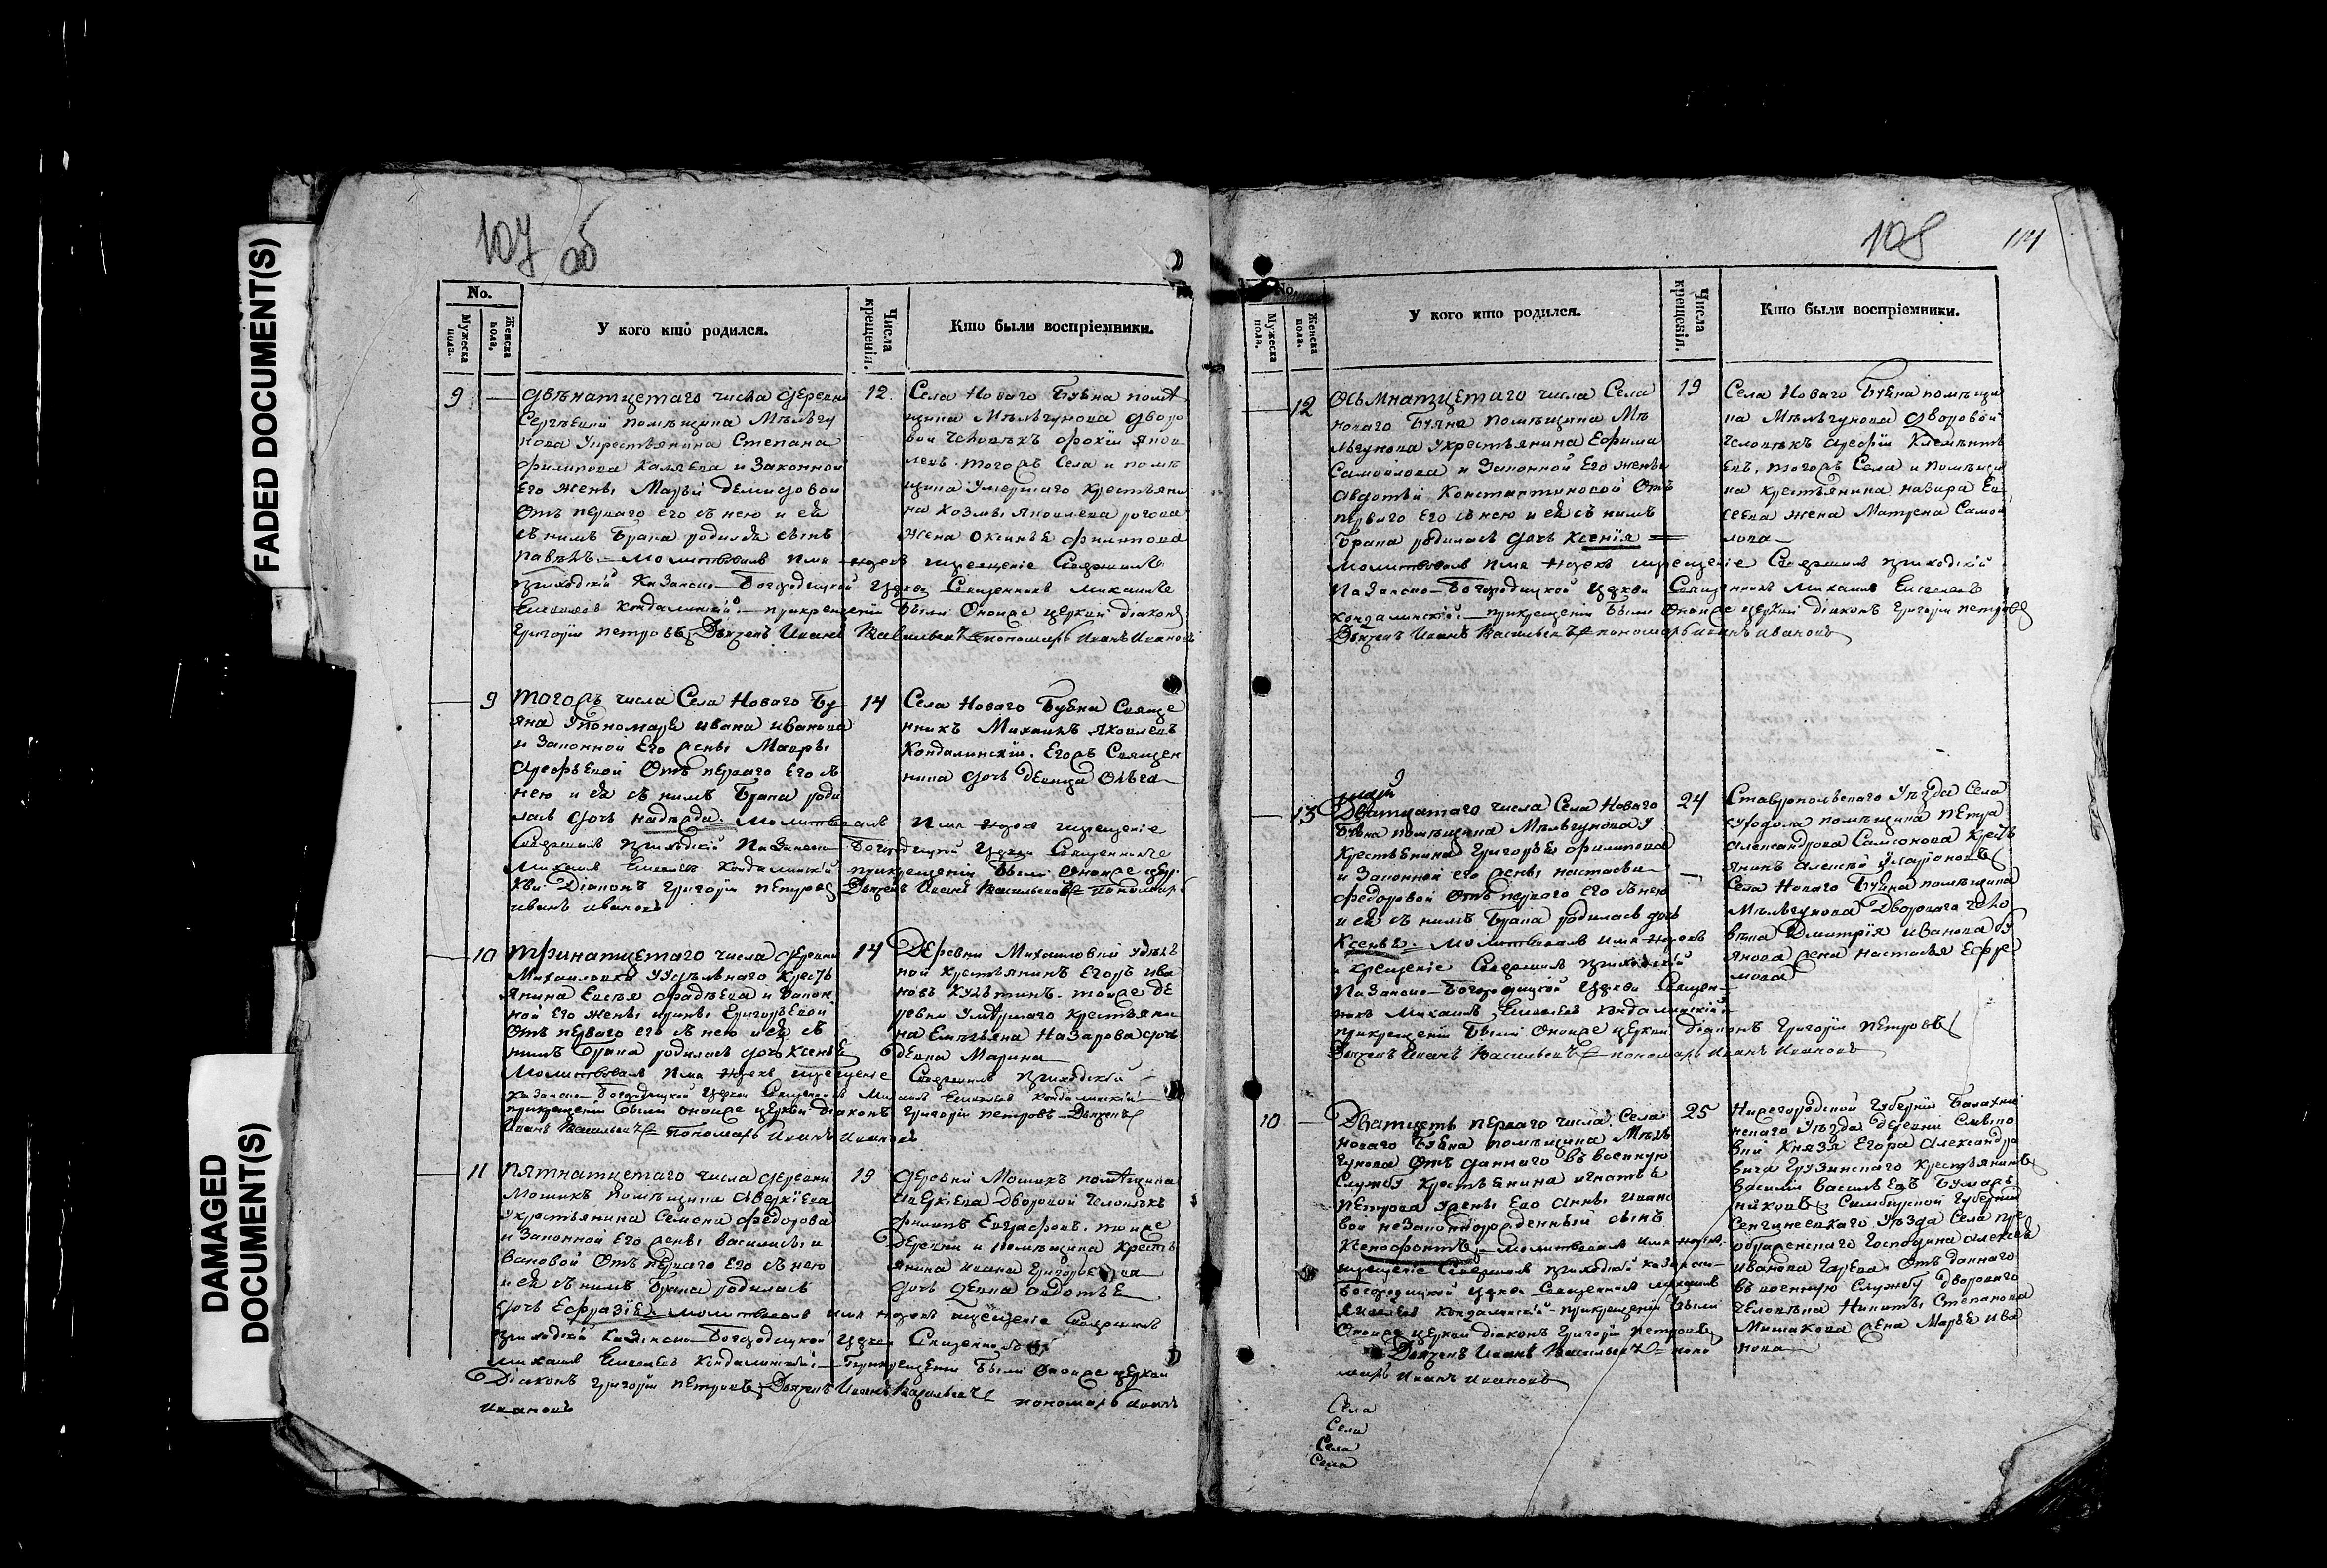 FADED DOCUMENT(S)
DAMAGED
DOCUMENT(S)
107 об
No.
Мужеска пола.
Женска пола.
У кого кто родился.
Числа крещенія.
Кто были воспріемники.
9 — двѣнатцетаго числа деревни
помѣщика Мѣльгу
нова Укрестьянина Степана
Филипова и Законной
Его жены Марьи демидовой
Отъ перваго его съ нею и ея
съ нимъ Брака родился сынъ
Молитвовалъ имя нарекъ икрещеніе Совершилъ
приходскій Казанско-Богородицкой Церкви Священникъ Михаилъ
Кондалинскій — прикрещеніи Были Оноиже церкви діаконъ
Григорій Петровъ Дьячекъ Иванъ Васильевъ пономарь Иванъ Ивановъ
12 Села Новаго Буяна помѣ
щика Мѣльгунова дворо
вой человѣкъ Яков
левъ. тогожъ Села и помѣ
щика Умершаго крестьяни
на Козмы Яковлева
жена Филипова
9 тогожъ числа Села Новаго Бу
яна Упономаря ивана иванова
и Законной Его жены Мавры
Отъ перваго Его съ
нею и ея съ нимъ Брака роди
лась дочь надежда. Молитвовалъ имя нарекъ икрещеніе
Совершилъ приходскій Казанско-Богородицкой Церкви Священникъ
Михаилъ Кондалинскій прикрещеніи были Оноиже цер
кви Діаконъ Григорій Петровъ Дьячекъ Иванъ Васильевъ пономарь
иванъ ивановъ
14 Села Новаго Буяна Свяще
нникъ Михаилъ Яковлевъ
Кондалинскій. Егожъ Священ
ника дочь девица Ольга
10 тринатцетаго числа деревни
Михайловки Уудѣльнаго Кресть
янина и Закон
ной Его жены ирины Григорьевой
Отъ перваго его съ нею и ея съ
нимъ Брака родилась дочь Ксенья
Молитвовалъ имя нарекъ икрещеніе Совершилъ приходскій
Казанско-Богородицкой Церкви Священникъ Михаилъ Кондалинскій
прикрещеніи были оноиже церкви діаконъ Григорій Петровъ Дьячекъ
Иванъ Васильевъ пономарь Иванъ Ивановъ
14 Деревни Михайловки удѣль
ной Крестьянинъ Егоръ ива
новъ тоиже де
ревни Умершаго Крестьяни
на Емельяна Назарова дочь
девка Марина
11 Пятнатцетаго числа деревни
помѣщика Аверкіева
Укрестьянина Семена Федорова
и Законной Его жены василисы и
вановой Отъ перваго Его съ нею
и ея съ нимъ Брака родилась
дочь Молитвовалъ имя нарекъ икрещеніе Совершилъ
приходскій Казанско-Богородицкой церкви Священникъ
Михаилъ Кондалинскій прикрещеніи Были Оноиже церкви
Діаконъ Григорій Петровъ Дьячекъ Иванъ Васильевъ пономарь Иванъ
Ивановъ
19 деревни помѣщика
Аверкіева Дворовой Человѣкъ
Филипъ тоиже
Деревни и помѣщика Кресть
янина ивана Григорьева
дочь девка авдотья
108
No.
Мужеска пола.
Женска пола.
У кого кто родился.
Числа крещенія.
Кто были воспріемники.
12 Осьмнатцетаго числа Села
новаго Буяна Помѣщика Мѣ
льгунова Укрестьянина Ефима
Самойлова и Законной Его жены
Авдотьи Константиновой Отъ
перваго Его съ нею и ея съ нимъ
Брака родилась дочь Ксенія
молитвовалъ имя нарекъ икрещеніе Совершилъ приходскій
Казанско-Богородицкой церкви Священникъ Михаилъ
Кондалинскій — прикрещеніи Были Оноиже церкви діаконъ Григорій Петровъ
Дьячекъ Иванъ Васильевъ пономарь иванъ ивановъ
19 Села Новаго Буяна помѣщи
ка Мѣльгунова дворовой
человѣкъ
тогожъ Села и помѣщи
ка крестьянина назара
жена Матрена Самой
лова
13 Дватцатаго числа Села Новаго
Буяна помѣщика Мѣльгунова у
крестьянина Григорья Филипова
и Законной его жены настасьи
Федоровой Отъ перваго Его съ нею
и ея съ нимъ Брака родилась дочь
Ксенья. Молитвовалъ имя нарекъ
и крещеніе Совершилъ приходскій
Казанско-Богородицкой церкви Священ
никъ Михаилъ Кондалинскій
прикрещеніи Были Оноиже церкви діаконъ Григорій Петровъ
Дьячекъ Иванъ Васильевъ пономарь Иванъ Ивановъ
24 Ставропольскаго Уѣзда Села
Суходола помѣщика Петра
Александрова Самсонова Кресть
янинъ Алексѣй
Села Новаго Буяна помѣщика
Мѣльгунова Двороваго чело
вѣка Дмитрія иванова бу
янова жена настасья Ефре
мова
10 Дватцать перваго числа Села
новаго Буяна помѣщика Мѣль
гунова Отъ даннаго въ военную
Службу Крестьянина игнатья
Петрова Ужены Его анны ивано
вой незаконнорожденный сынъ
Ксенофонтъ. Молитвовалъ имя нарекъ
икрещеніе Совершилъ приходскій казанско
Богородицкой церкви Священникъ Михаилъ
Кондалинскій прикрещеніи Были
Оноиже церкви діаконъ Григорій Петровъ
Дьячекъ Иванъ Васильевъ поно
марь Иванъ Ивановъ
25 Нижегородской Губерніи Балахни
нскаго Уѣзда деревни
Князя Егора Александро
вича Грузинскаго крестьянинъ
василій васильевъ
Симбирской Губерніи
Сенгилеевскаго Уѣзда Села пре
ображенскаго Господина Алексѣя
иванова Отъ даннаго
въ военную Службу двороваго
человѣка Никиты Степанова
жена Марья ива
нова
Села
Села
Села
Села